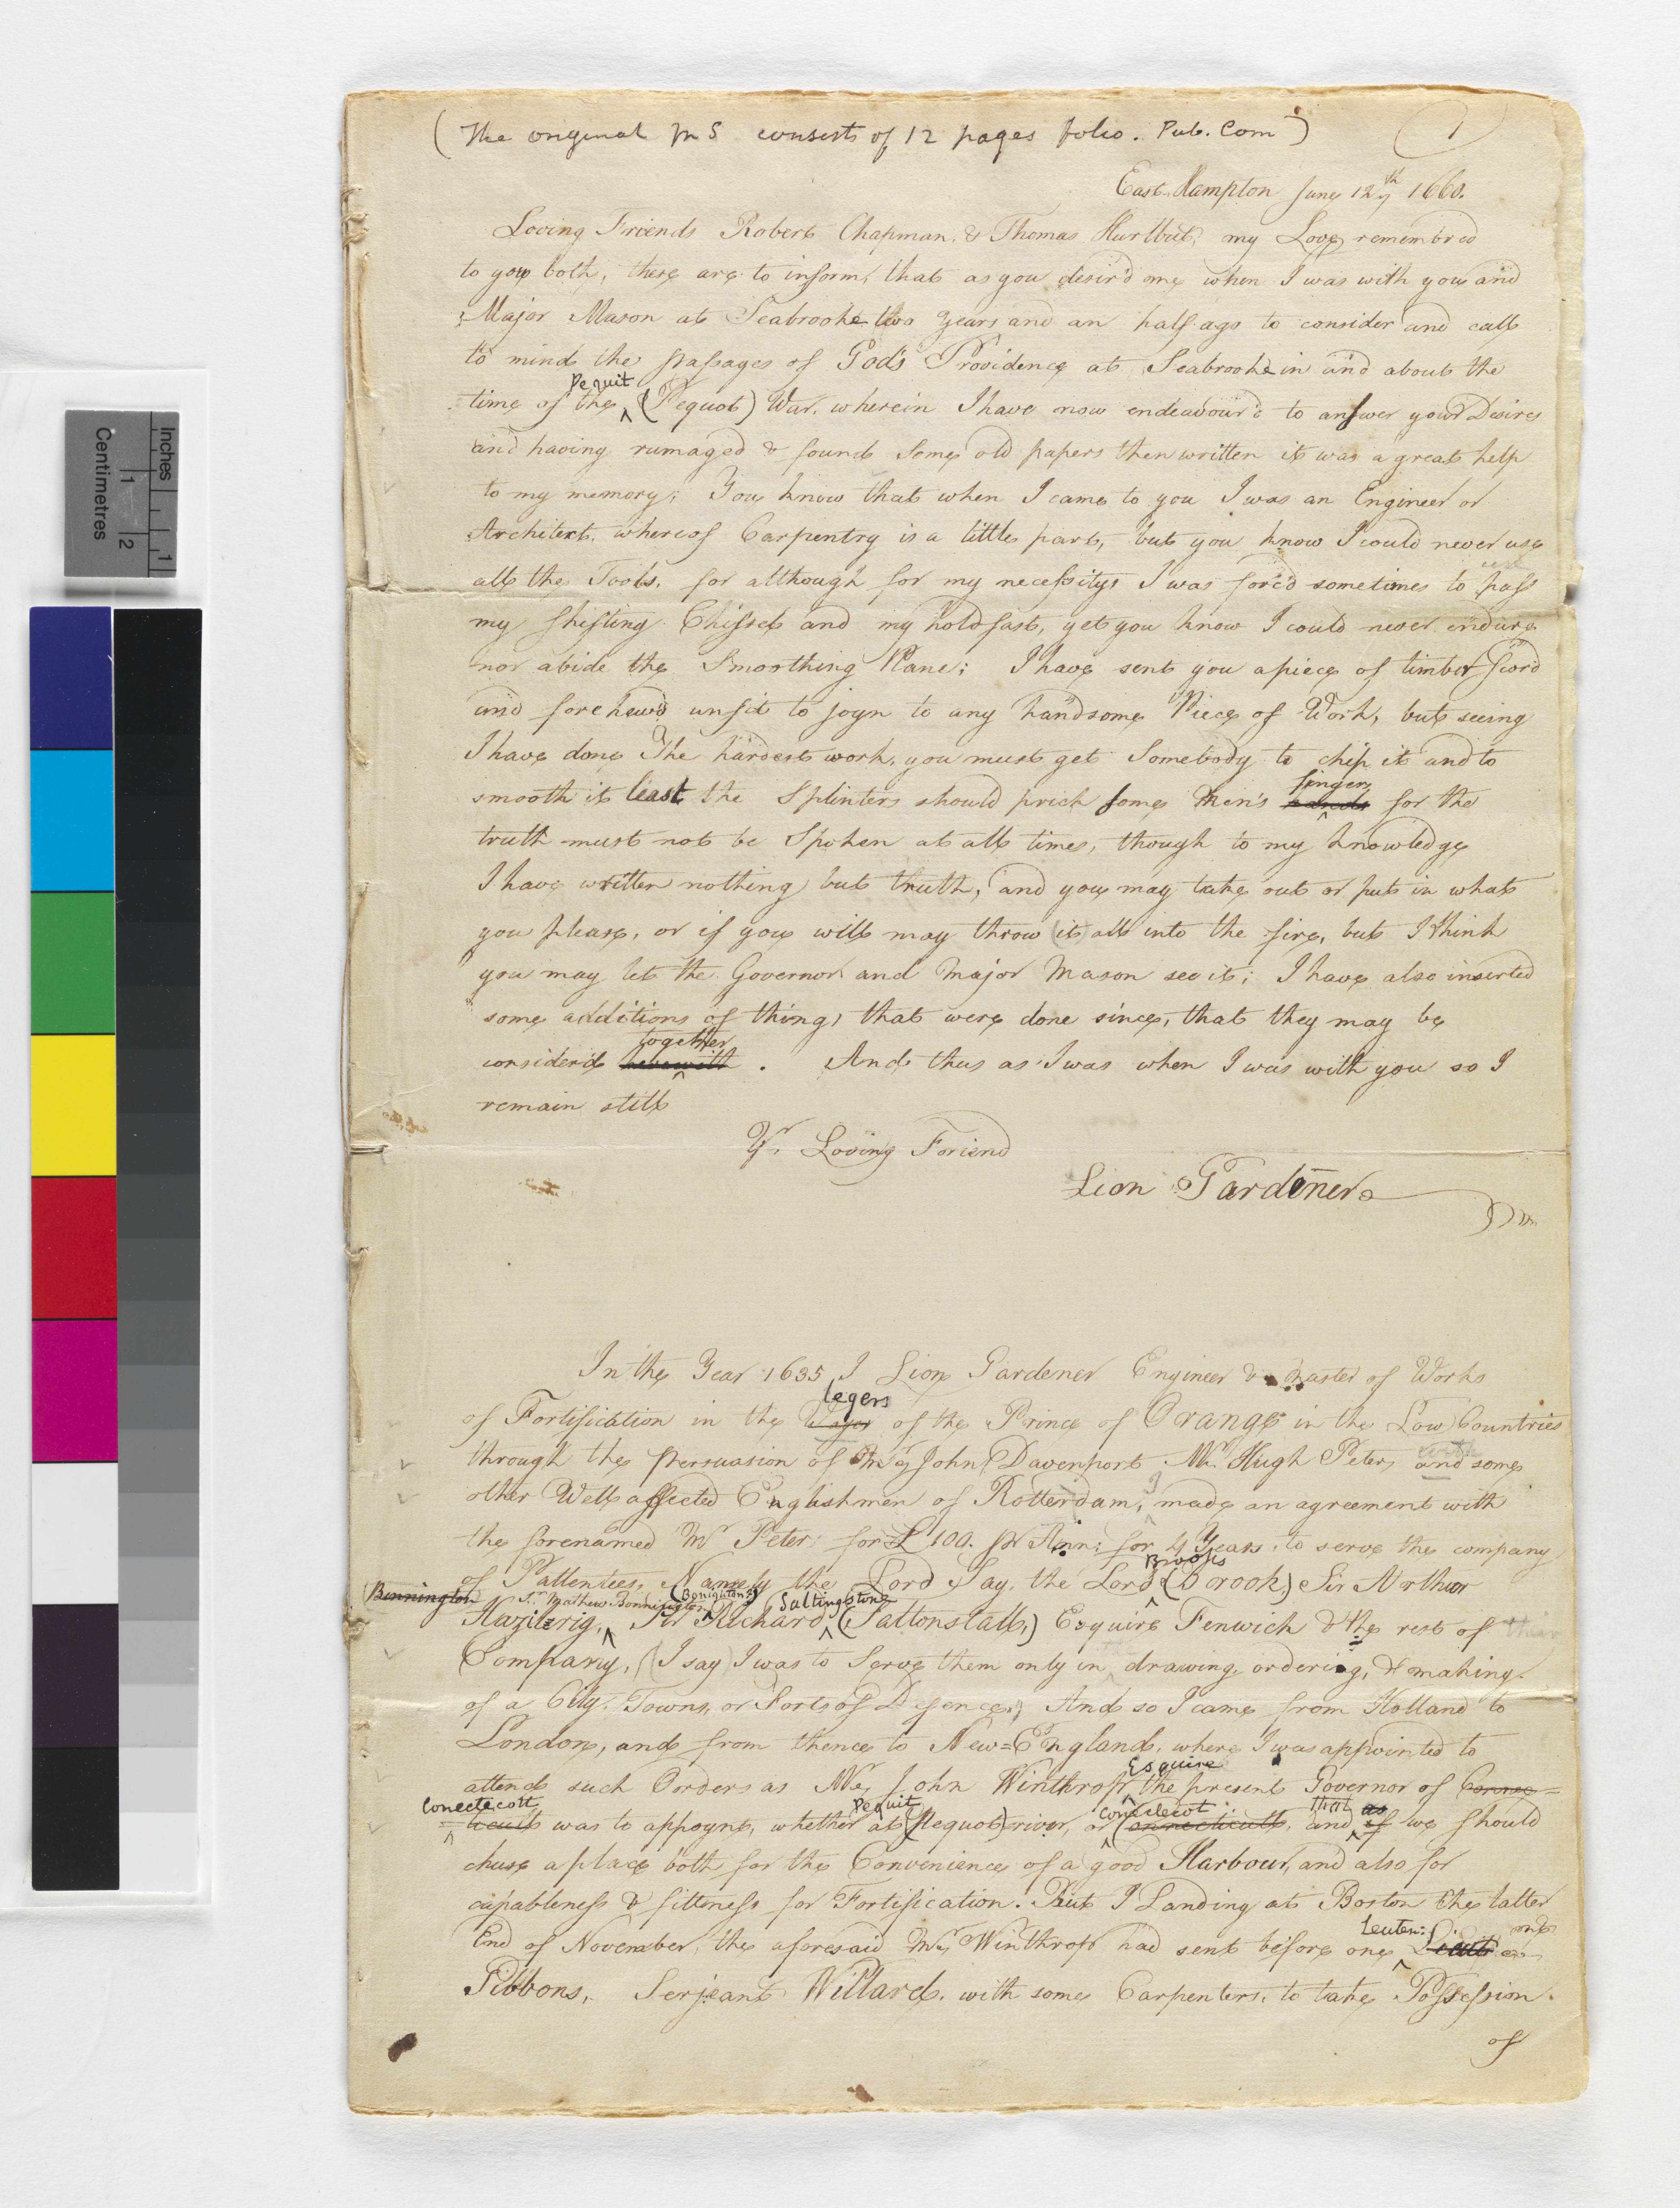 (The original MS consists of 12 pages folio. Pub. Com)
1
East-Hampton June 12th 1660.
Loving Friends Robert Chapman, & Thomas Hurlbut, my Love remembred
to you both, these are to inform, that as you desir'd me when I was with you and
Major Mason at Seabrooke two years and an half ago to consider and call
to mind the passages of God's Providence at Seabrooke in and about the
Pequit
time of the (Pequot) War, wherein I have now endeavour'd to answer your Desires
and having rumaged & found Some old papers then written it was a great help
to my memory; You know that when I came to you I was an Engineer or
Architect, whereof Carpentry is a little part, but you know I could never use
all the Tools, for although for my necessitys I was forc'd sometimes to
my shifting Chissel and my holdfast, yet you know I could never endure
nor abide the Smoothing Plane; I have sent you a piece of timber scor'd
and forehew'd unfit to joyn to any handsome Piece of Work, but seeing
I have done The hardest work, you must get Somebody to chip it and to
fingers
smooth it least the Splinters should prick some Men's hands for the
truth must not be Spoken at all times, though to my knowledge
I have written nothing but truth, and you may take out or put in what
you please, or if you will may throw it all into the fire, but I think
you may let the Governor and Major Mason see it; I have also inserted
some additions of things that were done since, that they may be
together
consider'd herewith . And thus as I was when I was with you so I
remain still
Yr. Loving Foriend
Lion Gardener
In the Year 1635 I Lion Gardener Engineer & Master of Works
legers
of Fortification in the of the Prince of Orange in the Low Countries
with
through the perswasion of Mr John Davenport Mr. Hugh Peters and some
other Well affected Englishmen of Rotterdam, I made an agreement with
the forenamed Mr Peters for £100. pr Ann: for 4 Years, to serve the company
Brookes
of Pattentees, Namely the Lord Say, the Lord (Brook) Sir Arthur
Bonnington Sr. Mathew Bonnington (Bonighton?) Saltingstone
Hazilrig, Sir Richard (Saltonstall,) Esquire Fenwick & the rest of their
Company, (I say) I was to Serve them only in drawing, ordering, & making
of a City, Towns, or Forts of Defence; And so I came from Holland to
London, and from thence to New=England, where I was appointed to
Esquire
attend such Orders as Mr. John Winthrop, the present Governor of Connec=
Conectecott Pequit Conectecot that as
=ticutt was to appoynt, whether at (Pequot) river, or (onnecticutt, and if we should
chuse a place both for the Convenience of a good Harbour, and also for
capableness & fittness for Fortification. But I Landing at Boston the latter
Leuten:
End of November, the aforesaid Mr. Winthrop had sent before one
Gibbons, Serjeant Willard, with some Carpenters, to take Possession
of
Inches
1
Centimetres
1
2